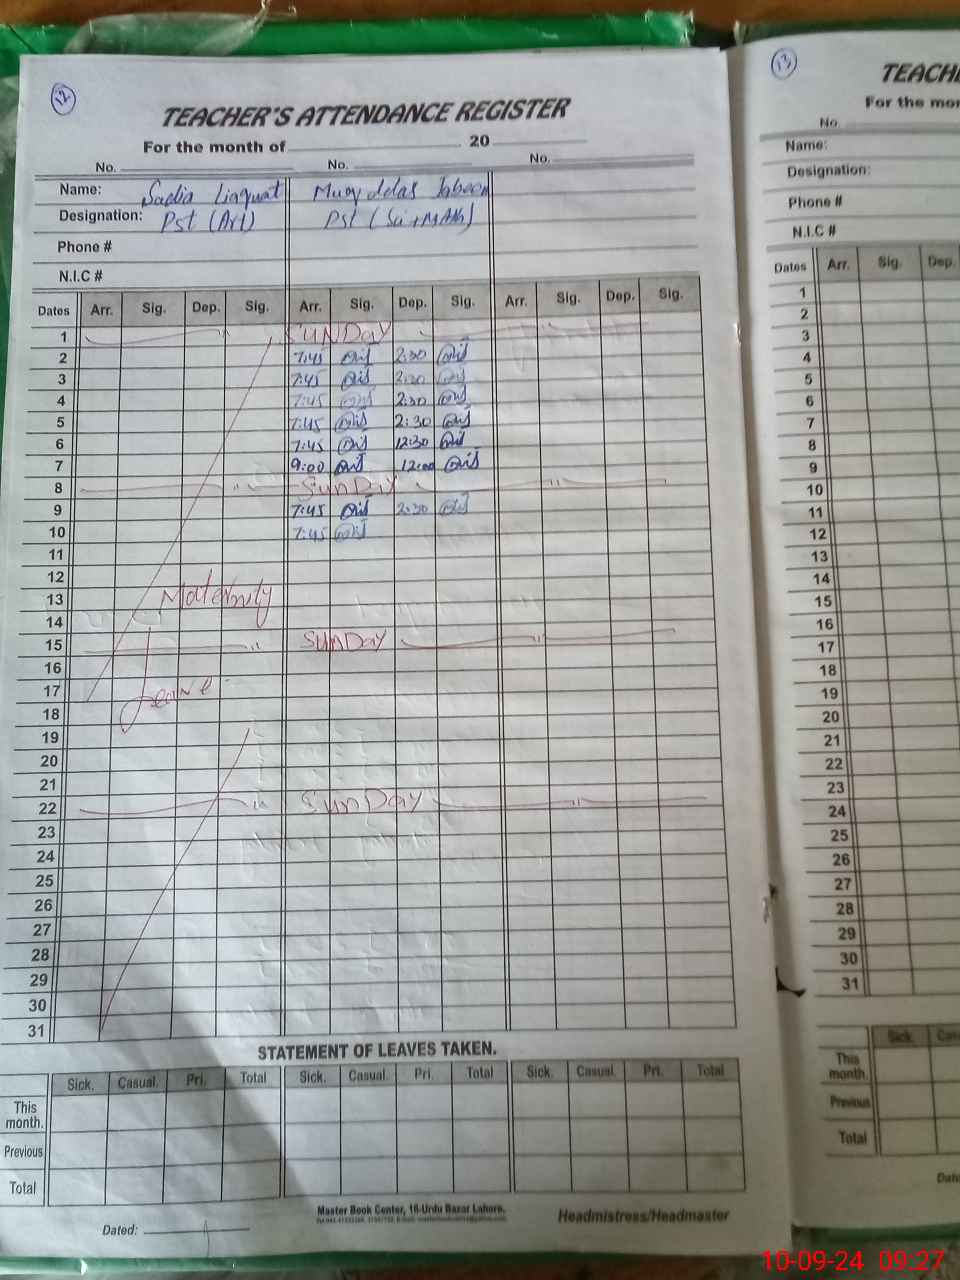 12
TEACHER'S ATTENDANCE REGISTER
For the month of 20
No. No. No.
Name: Sadia Liaquat
Designation: Pst (Art) Pst (Sci+Math)
Phone #
N.I.C #
Dates Arr. Sig. Dep. Sig. Arr. Sig. Dep. Sig. Arr. Sig. Dep. Sig.
1 SUNDAY
2 7:45 2:30
3 7:45 2:30
4 7:45 2:30
5 7:45 2:30
6 7:45 12:30
7 9:00 12:00
8 " SUNDAY "
9 7:45 2:30
10 7:45
11
12
13 Maternity
14
15 " SUNDAY "
16
17 Leave
18
19
20
21
22 " SUNDAY "
23
24
25
26
27
28
29
30
31
STATEMENT OF LEAVES TAKEN.
Sick. Casual. Pri. Total Sick. Casual. Pri. Total Sick. Casual. Pri. Total
This month.
Previous
Total
Master Book Center, 16-Urdu Bazar Lahore.
Dated: Headmistress/Headmaster
13
TEACH
For the mon
No.
Name:
Designation:
Phone #
N.I.C #
Dates Arr. Sig. Dep.
1
2
3
4
5
6
7
8
9
10
11
12
13
14
15
16
17
18
19
20
21
22
23
24
25
26
27
28
29
30
31
Sick. Cas
This month.
Previous
Total
Date
10-09-24 09:27